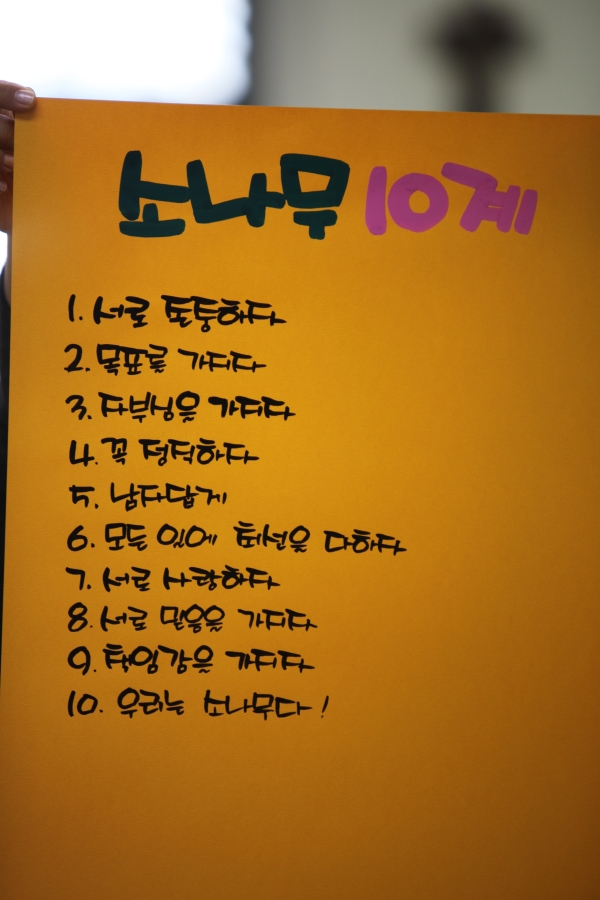 소나무 10계
1. 서로 존중하자
2. 목표를 가지자
3. 자부심을 가지자
4. 꼭 정직하자
5. 남자답게
6. 모든 일에 최선을 다하자
7. 서로 사랑하자
8. 서로 믿음을 가지자
9. 책임감을 가지자
10. 우리는 소나무다!